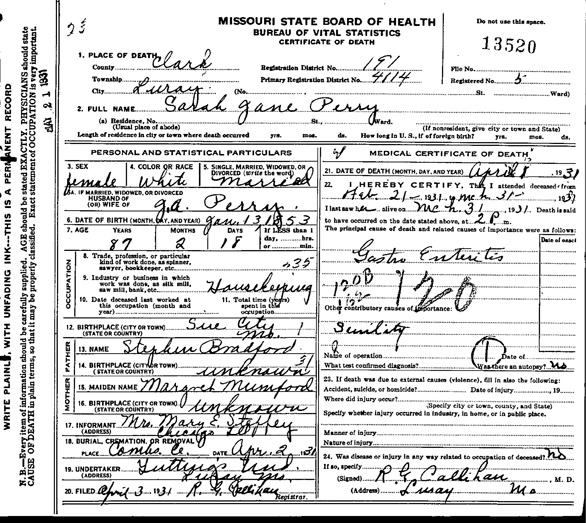 MISSOURI STATE BOARD OF HEALTH
BUREAU OF VITAL STATISTICS
CERTIFICATE OF DEATH
Do not use this space.
13520
1. PLACE OF DEATH
County Clark
Registration District No. 191
File No.
Township
Primary Registration District No. 4114
Registered No. 5
City Luray (No. St. Ward)
2. FULL NAME Sarah Jane Perry
(a) Residence, No. St., Ward.
(Usual place of abode) (If nonresident, give city or town and State)
Length of residence in city or town where death occurred yrs. mos. ds. How long in U. S., if of foreign birth? yrs. mos. ds.
PERSONAL AND STATISTICAL PARTICULARS
3. SEX female
4. COLOR OR RACE White
5. SINGLE, MARRIED, WIDOWED, OR DIVORCED (write the word) Married
5A. IF MARRIED, WIDOWED, OR DIVORCED
HUSBAND OF
(OR) WIFE OF Perry
6. DATE OF BIRTH (MONTH, DAY, AND YEAR) Jan. 13 1853
7. AGE YEARS 87 MONTHS 2 DAYS 18 If LESS than 1 day, hrs. or min.
OCCUPATION
8. Trade, profession, or particular kind of work done, as spinner, sawyer, bookkeeper, etc.
235
9. Industry or business in which work was done, as silk mill, saw mill, bank, etc. Housekeeping
10. Date deceased last worked at this occupation (month and year)
11. Total time (years) spent in this occupation
12. BIRTHPLACE (CITY OR TOWN) Sue City
(STATE OR COUNTRY) Mo.
FATHER
13. NAME Stephen Bradford
14. BIRTHPLACE (CITY OR TOWN)
(STATE OR COUNTRY) unknown
MOTHER
15. MAIDEN NAME Margret Mumford
16. BIRTHPLACE (CITY OR TOWN)
(STATE OR COUNTRY) unknown
17. INFORMANT Mrs. Mary E.
(ADDRESS) Chicago Ill
18. BURIAL, CREMATION, OR REMOVAL
PLACE Combs Ce. DATE Apr. 2 1931
19. UNDERTAKER
(ADDRESS) Luray Mo.
20. FILED April 3 1931 R. G. Callihan
Registrar.
MEDICAL CERTIFICATE OF DEATH
21. DATE OF DEATH (MONTH, DAY, AND YEAR) April 1931
22. I HEREBY CERTIFY, That I attended deceased from
Feb. 21 1931, to Mch 31 1931
I last saw alive on Mch. 31 1931. Death is said
to have occurred on the date stated above, at 2 P m.
The principal cause of death and related causes of importance were as follows:
Date of onset
Gastro Enteritis
120B
120
Other contributory causes of importance:
Senility
Name of operation Date of
1
What test confirmed diagnosis? Was there an autopsy? No
23. If death was due to external causes (violence), fill in also the following:
Accident, suicide, or homicide? Date of injury 19
Where did injury occur?
(Specify city or town, county, and State)
Specify whether injury occurred in industry, in home, or in public place.
Manner of injury
Nature of injury
24. Was disease or injury in any way related to occupation of deceased? No
If so, specify
(Signed) R G Callihan, M. D.
(Address) Luray Mo
WRITE PLAINLY, WITH UNFADING INK—THIS IS A PERMANENT RECORD
N. B.—Every item of information should be carefully supplied. AGE should be stated EXACTLY. PHYSICIANS should state
CAUSE OF DEATH in plain terms, so that it may be properly classified. Exact statement of OCCUPATION is very important.
21 1931